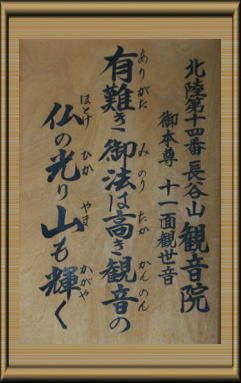 北陸第十四番 長谷山 観音院
御本尊 十一面観世音
有難き御法は高き観音の
ありがた み のり たか かんのん
仏の光り山も輝く
ほとけ ひか やま かがや